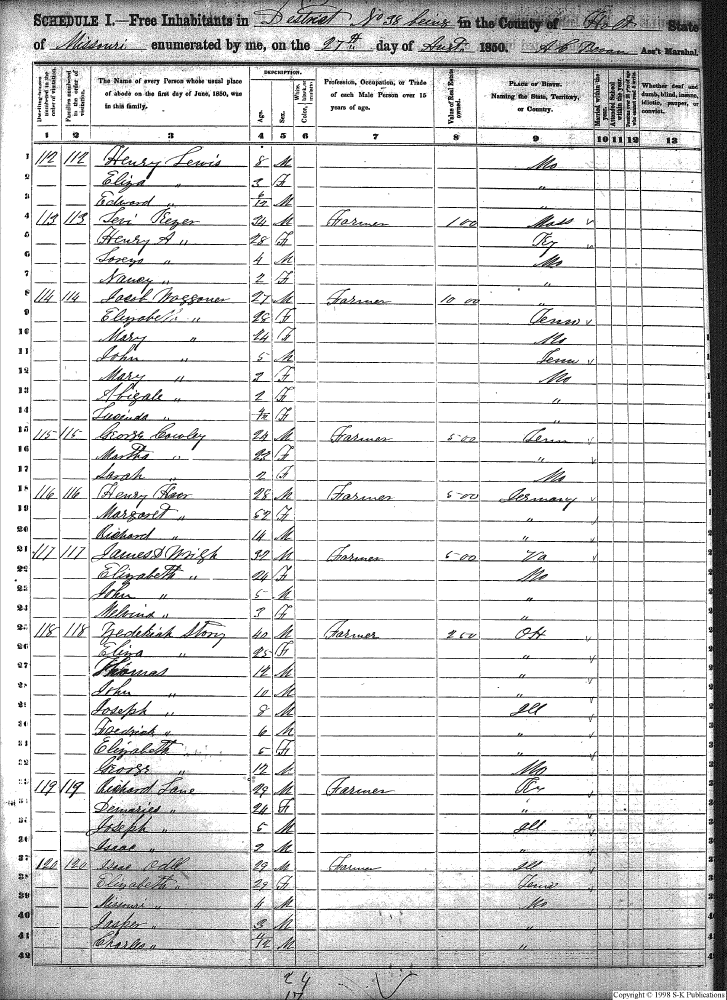 SCHEDULE I.—Free Inhabitants in District No 38 being in the County of Holt State
of Missouri enumerated by me, on the 27th day of Augt. 1850. Ass't Marshal.
Dwelling-houses numbered in the order of visitation.
Families numbered in the order of visitation.
The Name of every Person whose usual place of abode on the first day of June, 1850, was in this family.
DESCRIPTION.
Age.
Sex.
White, black, or mulatto.
Color,
Profession, Occupation, or Trade of each Male Person over 15 years of age.
Value of Real Estate owned.
PLACE OF BIRTH. Naming the State, Territory, or Country.
Married within the year.
Attended School within the year.
Whether deaf and dumb, blind, insane, idiotic, pauper, or convict.
1 2 3 4 5 6 7 8 9 10 11 12 13
1 112 112 Henry Lewis 8 M Mo
2 Eliza " 3 F "
3 Edward " 6/12 M "
4 113 113 Levi 24 M Farmer 100 Mass
5 Henry A " 28 F Ky
6 " 4 M Mo
7 Nancy " 2 F "
8 114 114 Jacob Waggoner 27 M Farmer 1000 "
9 Elizabeth " 28 F Tenn
10 Mary " 24 F Mo
11 John " 5 M Tenn
12 Mary " 2 F Mo
13 Abigale " 2 F "
14 Lucinda " 4/12 F "
15 115 115 George Cowley 24 M Farmer 500 Tenn
16 Martha " 22 F "
17 Sarah " 2 F Mo
18 116 116 Henry 28 M Farmer 500 Germany
19 Margaret " 52 F "
20 Richard " 14 M "
21 117 117 James Wrigh 32 M Farmer 500 Va
22 Elizabeth " 24 F Mo
23 John " 5 M "
24 Melvina " 3 F "
25 118 118 Frederick Story 40 M Farmer 250 OH
26 Eliza " 25 F "
27 Thomas 12 M "
28 John " 10 M "
29 Joseph " 8 M Ill
30 Fredrick " 6 M "
31 Elizabeth " 5 F "
32 George " 12 M Mo
33 119 119 Richard Lane 29 M Farmer Ky
34 Demaries " 24 F "
35 Joseph " 5 M Ill
36 Isaac " 2 M "
37 120 120 Isaac Odll 29 M Farmer Ill
38 Elizabeth " 29 F Tenn
39 Missouri " 4 M Mo
40 Jasper " 3 M "
41 Charles " 4/12 M "
42
Copyright © 1998 S-K Publications